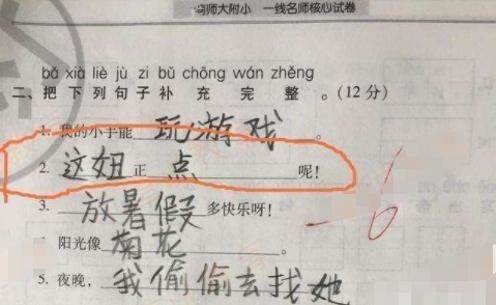 师大附小 一线名师核心试卷
bǎ xià liè jù zi bǔ chōng wán zhěng
二、把下列句子补充完整。(12分)
1. 我的小手能玩游戏。
2. 这妞正点呢!
3. 放暑假多快乐呀!
阳光像菊花。
5. 夜晚，我偷偷去找她
-6